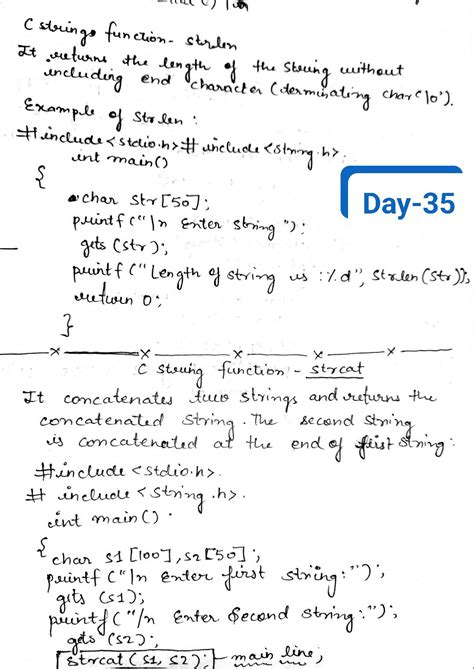 C strings function - strlen
It returns the length of the string without
including end character (terminating char '\0').
Example of Strlen :
#include<stdio.h> # include <string.h>.
int main()
{
char Str [50];
printf ("\n Enter string ");
gets (str);
printf ("Length of string is :%d", Strlen(Str));
return 0;
}
x x x x
C string function - strcat
It concatenates two strings and returns the
concatenated string. The second string
is concatenated at the end of first string.
#include <stdio.h>.
# include <string.h>.
int main()
{
char S1 [100], S2 [50];
printf ("\n Enter first string:");
gets (S1);
printf ("/n Enter Second String:");
gets (S2);
Strcat (S1, S2); - main line;
Day-35